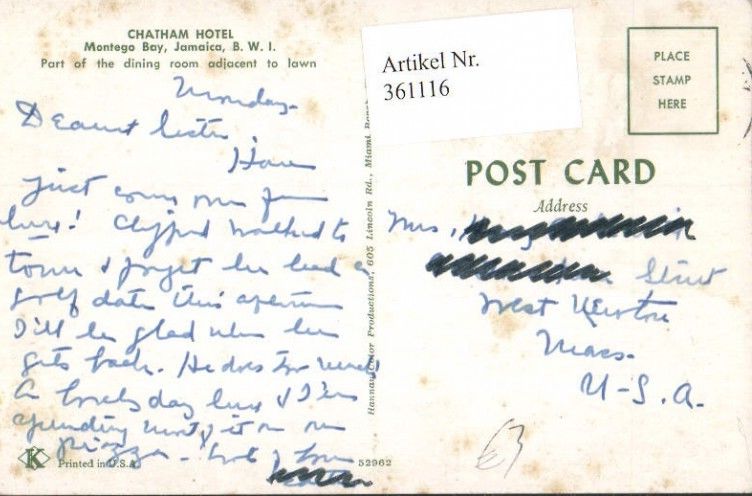 CHATHAM HOTEL
Montego Bay, Jamaica, B. W. I.
Part of the dining room adjacent to lawn
Monday-
Dearest Sister,
Have
just come from
! Clifford walked to
town & forgot he had a
golf date this afternoon
I'll be glad when he
gets back. He does too much
A lovely day here & I'm
spending most of it on
piazza - lots of love
K
Printed in U.S.A.
52962
Hannau Color Productions, 605 Lincoln Rd., Miami
Artikel Nr.
361116
PLACE
STAMP
HERE
POST CARD
Address
Mrs.
Street
West Newton
Mass.
U-S.A.